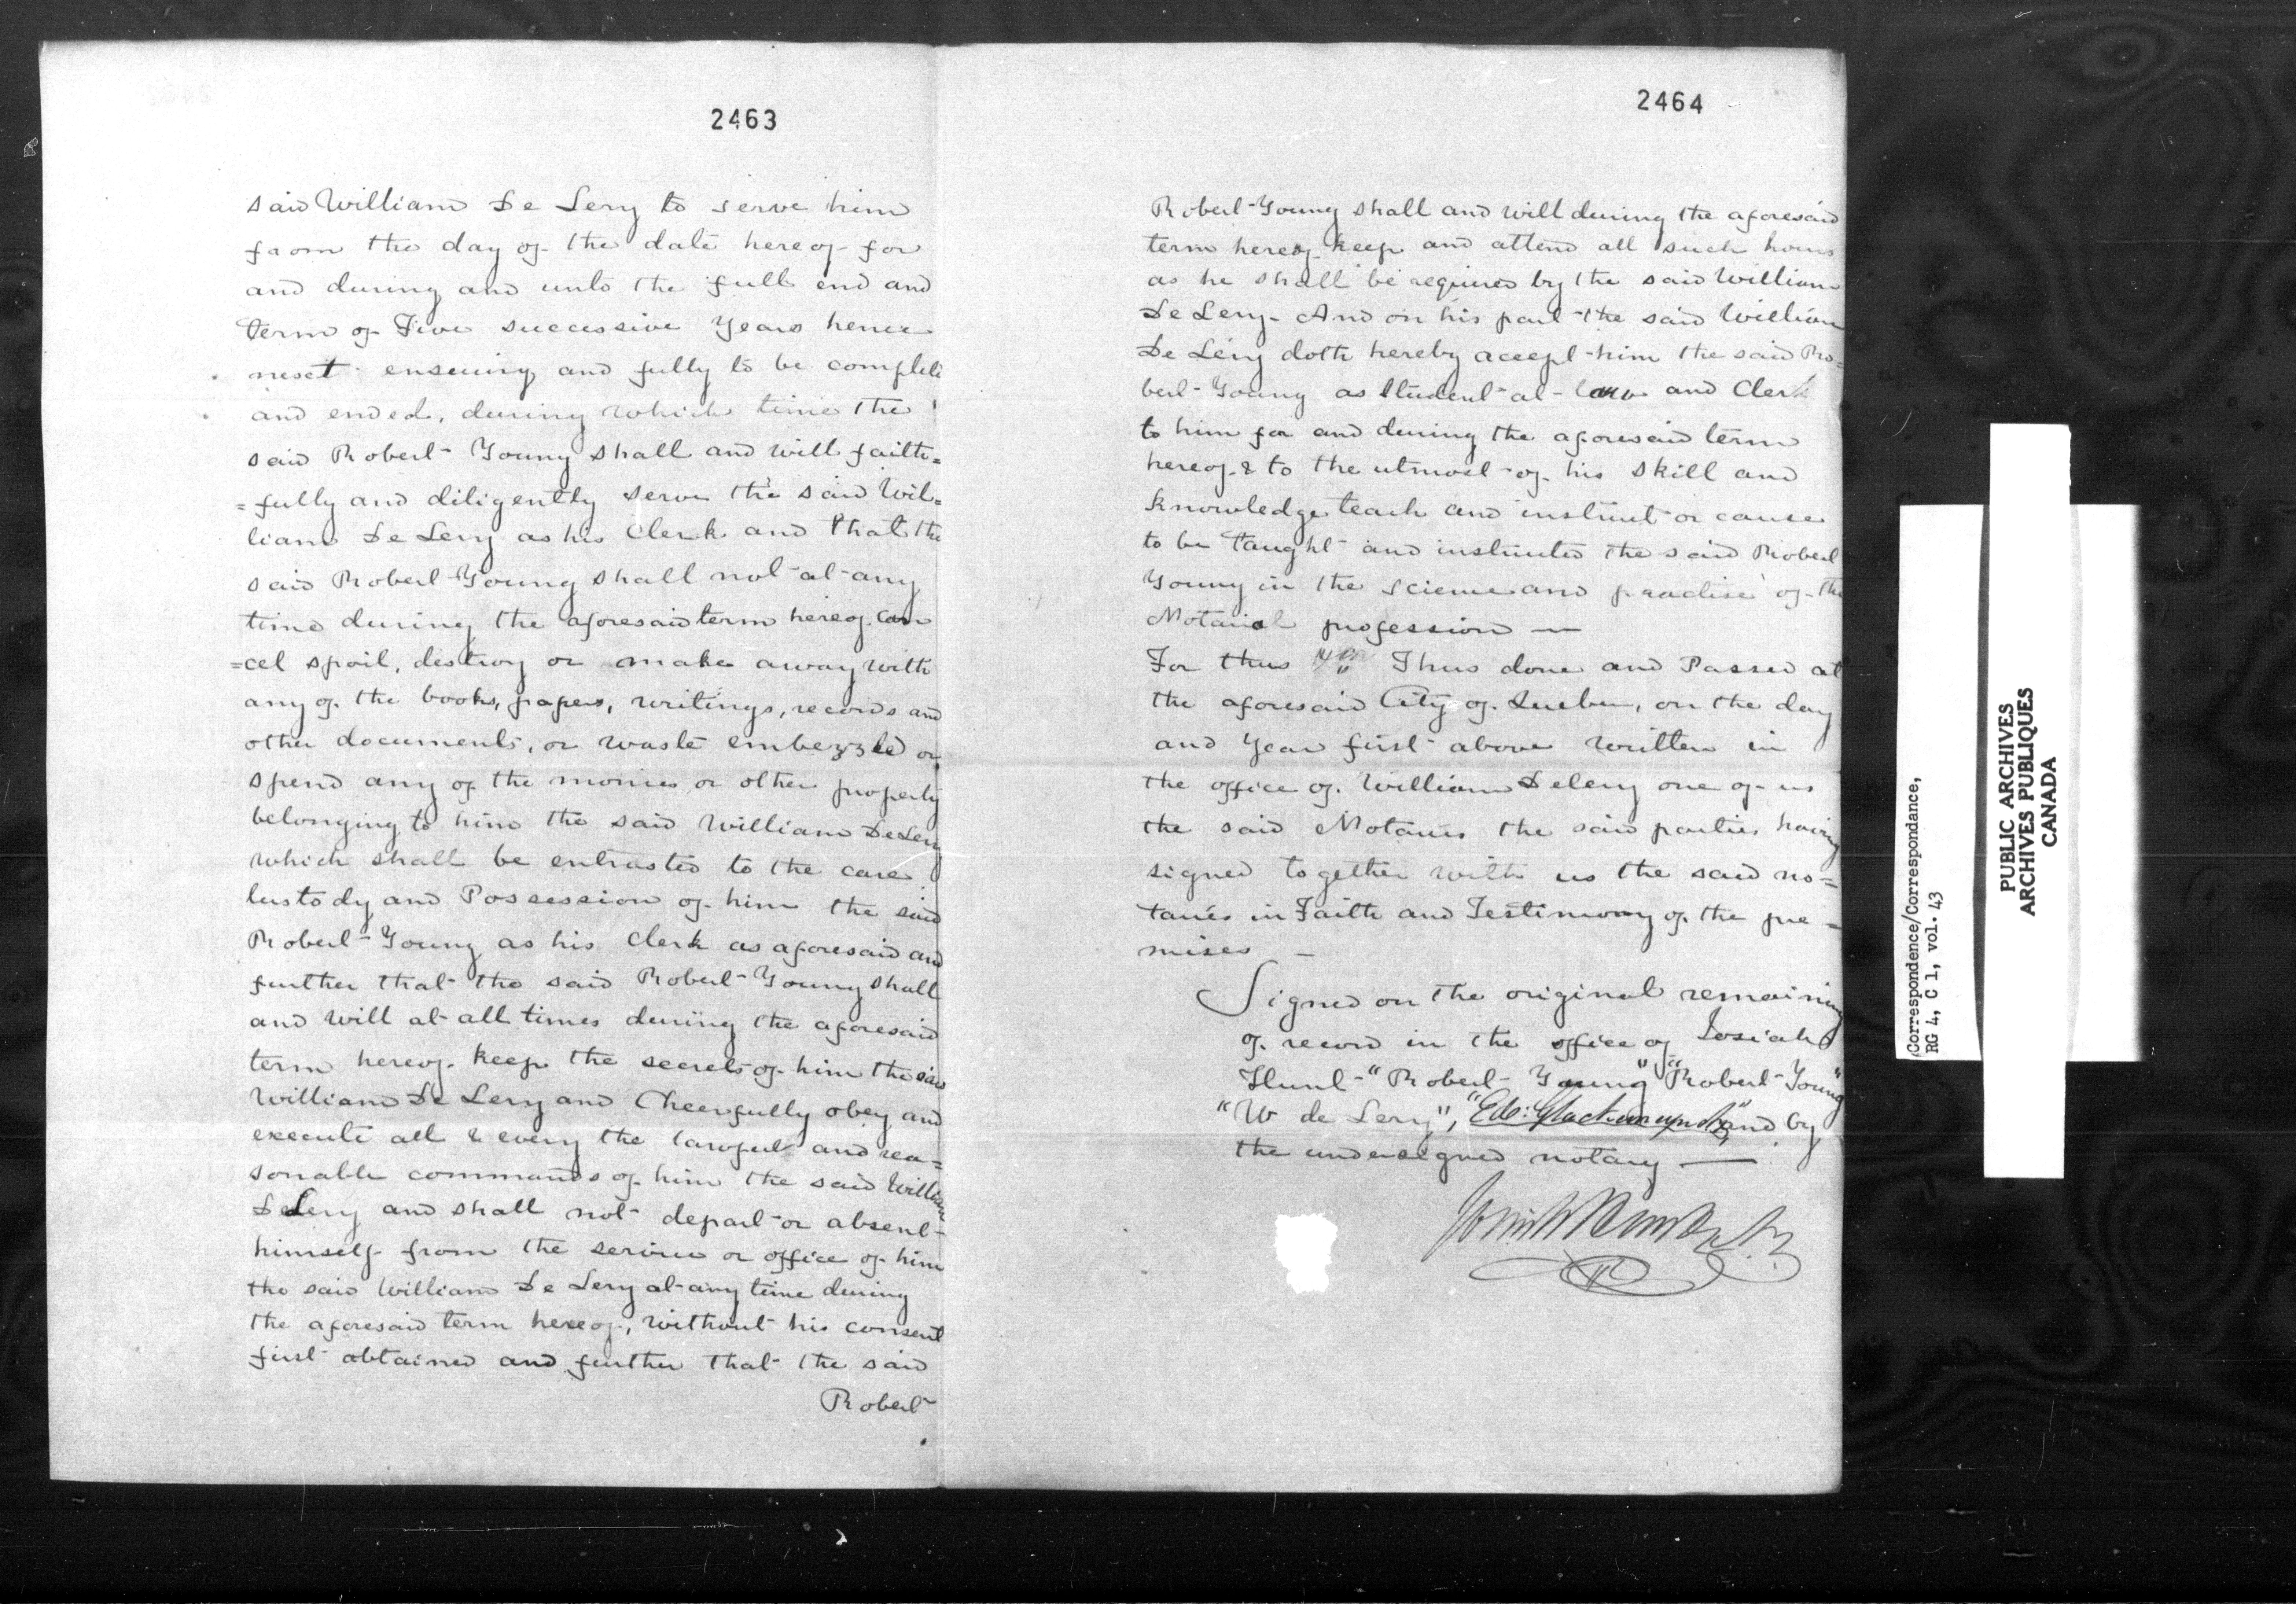 2463
said William De Lery to serve him
from the day of the date hereof for
and during and unto the full end and
term of Five successive Years hence
next ensuing and fully to be complete
and ended, during which time the
said Robert Young shall and will faith=
=fully and diligently serve the said Wil=
liam De Lery as his Clerk and that the
said Robert Young shall not at any
time during the aforesaid term hereof can
=cel spoil, destroy or make away with
any of the books, papers, writings, records and
other documents, or waste embezzled or
spend any of the monies or other property
belonging to him the said William De Lery
which shall be entrusted to the care
Custody and Possession of him the said
Robert Young as his Clerk as aforesaid and
further that the said Robert Young shall
and will at all times during the aforesaid
term hereof keep the secrets of him the said
William De Lery and Cheerfully obey and
execute all & every the lawful and rea=
sonable commands of him the said William
De Lery and shall not depart or absent
himself from the service or office of him
the said William De Lery at any time during
the aforesaid term hereof, without his consent
first obtained and further that the said
Robert
2464
Robert Young shall and will during the aforesaid
term hereof keep and attend all such hours
as he shall be required by the said William
De Lery. And on his part the said William
De Léry doth hereby accept him the said Ro=
bert Young as Student at law and Clerk
to him for and during the aforesaid term
hereof & to the utmost of his skill and
knowledge teach and instruct or cause
to be taught and instructed the said Robert
Young in the science and practise of the
Notarial profession —
For thus Thus done and Passed at
the aforesaid City of Quebec, on the day
and Year first above written in
the office of William Delery one of us
the said Notaries the said parties having
signed together with us the said no=
taries in Faith and Testimony of the pre=
mises —
Signed on the original remaining
of record in the office of Josiah
Hunt "Robert Young" "Robert Young"
"W de Lery", "Ed: Glackemeyer" and by
the undersigned notary —
Josiah Hunt N.P.
Correspondence/Correspondance,
RG 4, C 1, vol. 43
PUBLIC ARCHIVES
ARCHIVES PUBLIQUES
CANADA